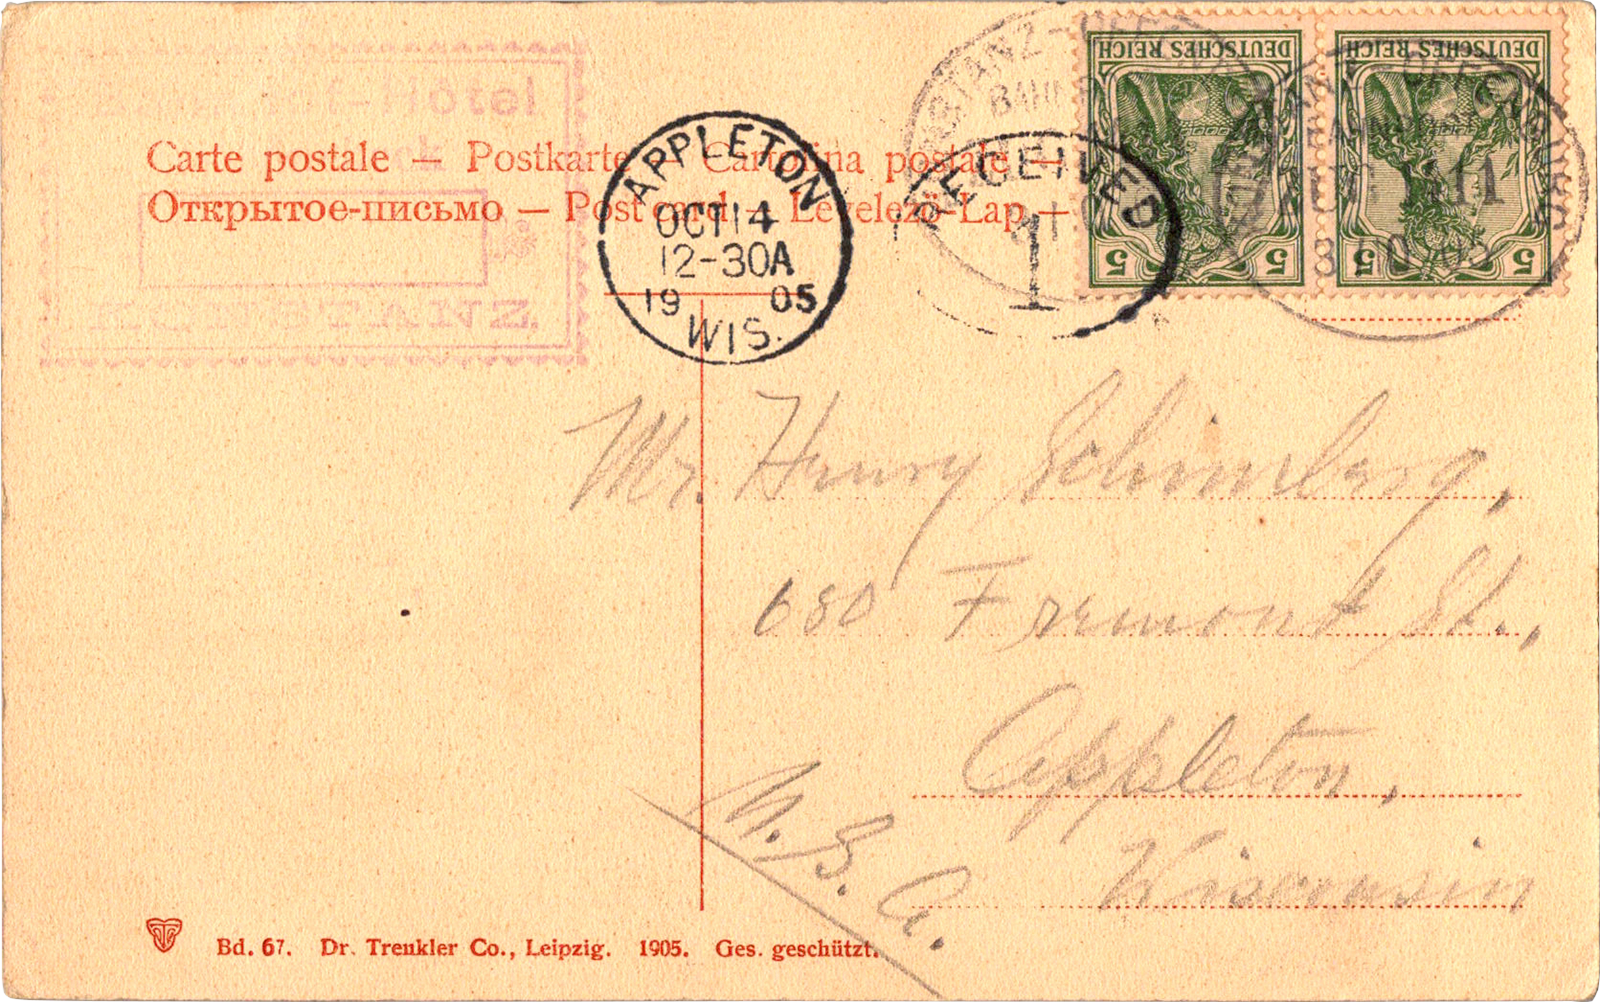 Hôtel
KONSTANZ
Carte postale — Postkarte — Cartolina postale —
Открытое-письмо — Post card — Levelező-Lap —
APPLETON
OCT 14
12-30A
19 05
WIS.
RECEIVED
1
KONSTANZ-OFFENBURG
BAHNPOST
DEUTSCHES REICH
5 5
DEUTSCHES REICH
5 5
Mr. Henry Schimberg,
680 Fremont St.,
Appleton,
Wisconsin
U. S. A.
Bd. 67. Dr. Trenkler Co., Leipzig. 1905. Ges. geschützt.